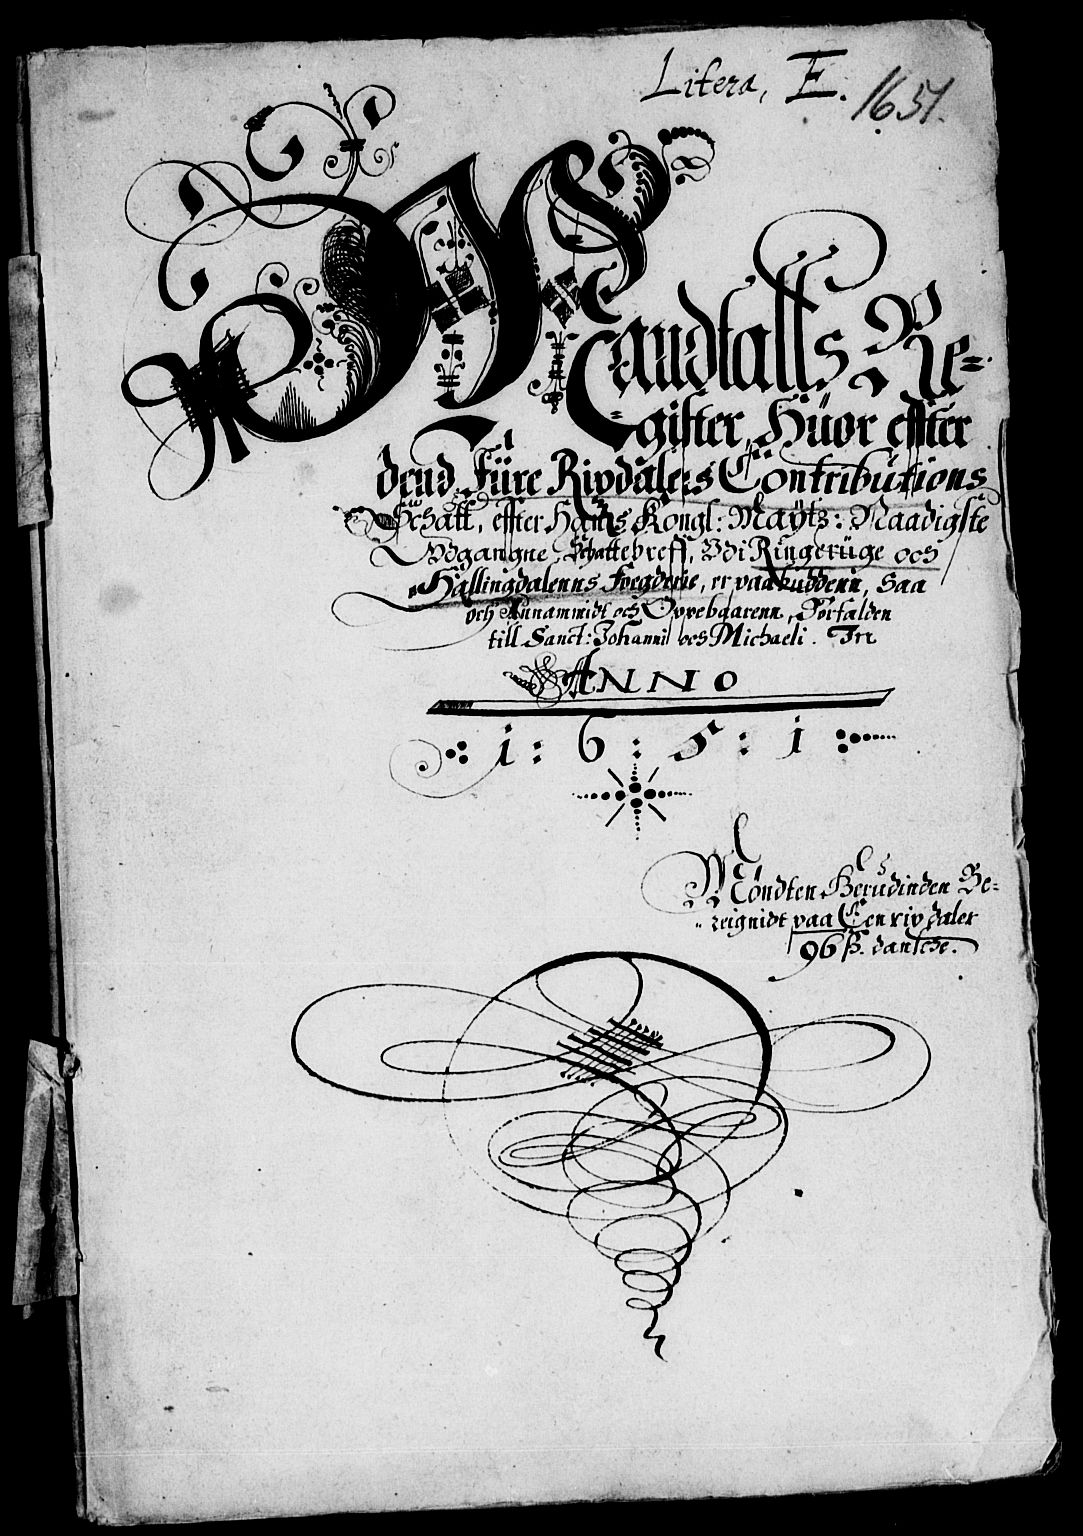 Litera, E. 1651.
Mandtalls Re-
gister, Hüor effter
dend Füre Rixdalers Contributions
Schatt, effter Hans Kongl: Maÿtz: Naadigste
Vdgangne Schattebreff, Vdi Ringerüge och
Hallingdalenns Foegderie, er paabüddenn, Saa
och Annammidt och Oppebaarenn, Forfalden
till Sanct: Johannis och Michaeli. In
ANNO
1: 6: 5: 1
Möndten Herudinden Be-
reignidt paa Een rixdaler
96 ß. dansche.